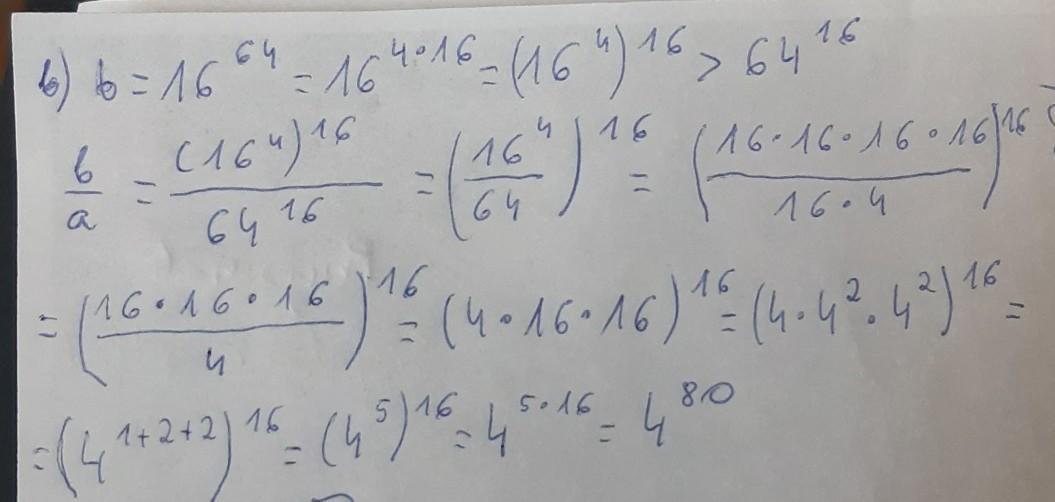 b) b = 16^64 = 16^(4·16) = (16^4)^16 > 64^16
b/a = (16^4)^16 / 64^16 = (16^4 / 64)^16 = ((16·16·16·16) / (16·4))^16
= ((16·16·16) / 4)^16 = (4·16·16)^16 = (4·4^2·4^2)^16 =
= (4^(1+2+2))^16 = (4^5)^16 = 4^(5·16) = 4^80